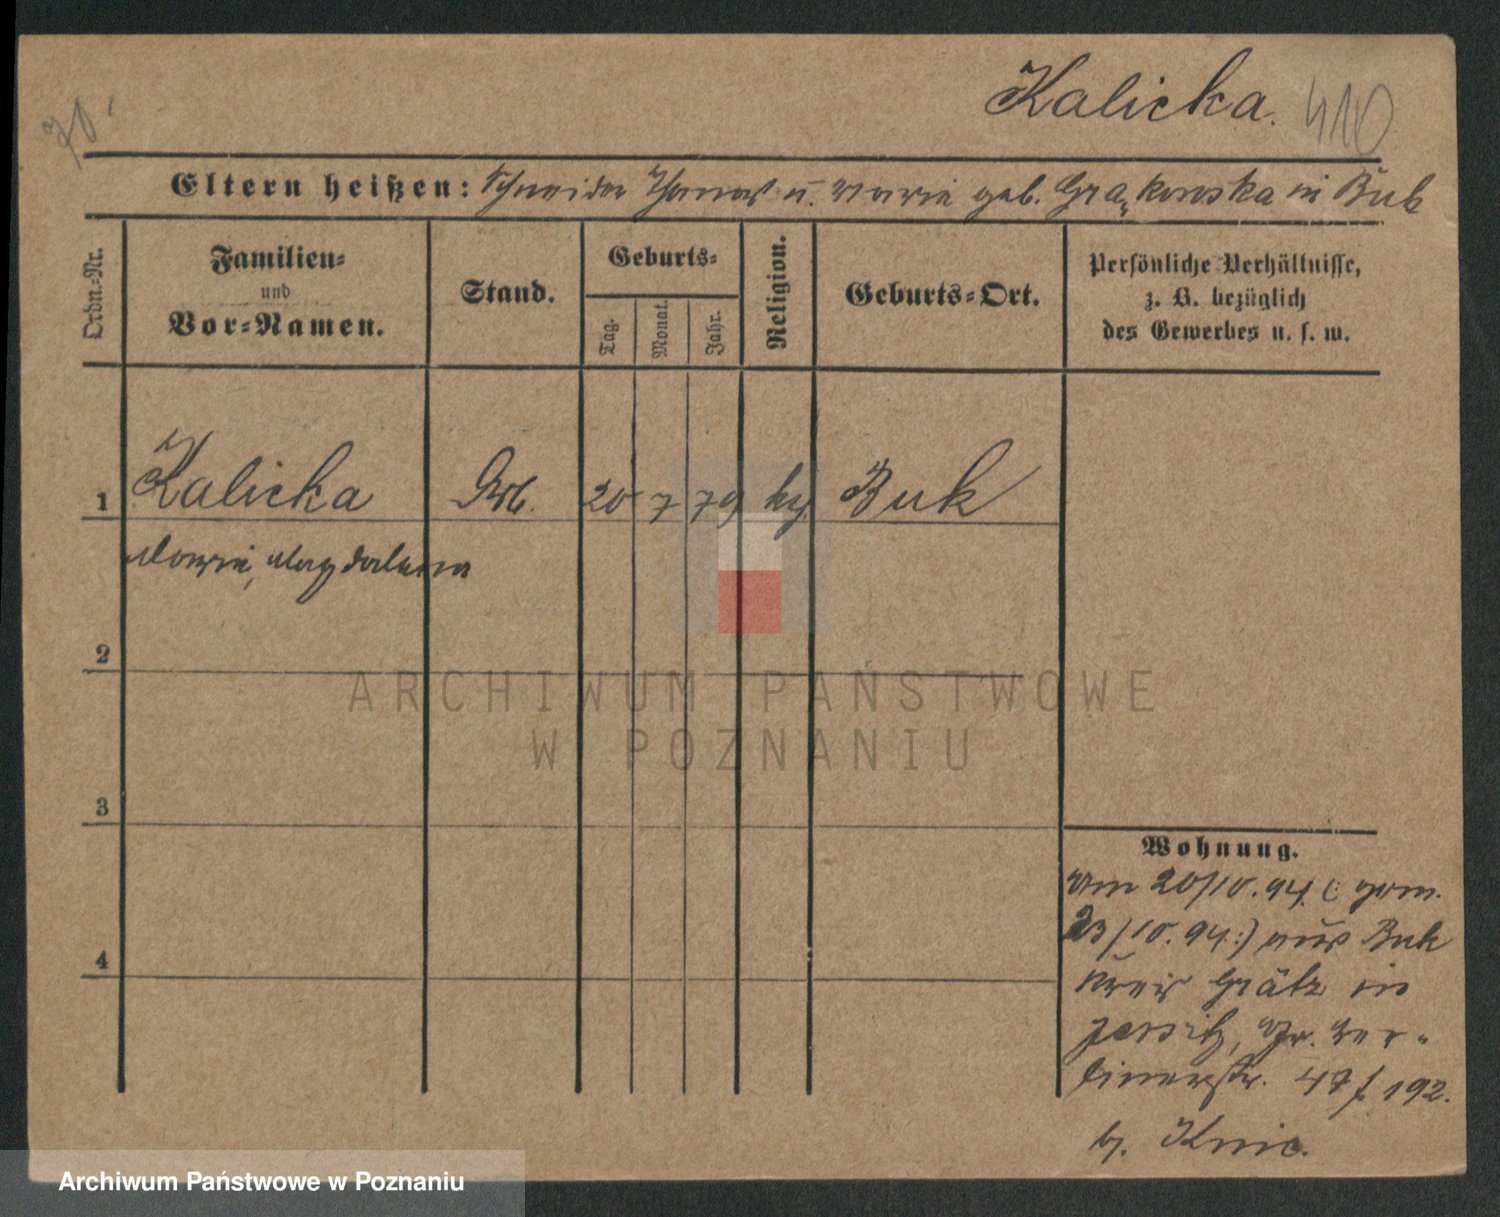 Kalicka. 410
Eltern heißen: Schneider Thomas u. Marie geb. Grąkowska in Buk
Ordn.-Nr.
Familien-
und
Vor-Namen.
Stand.
Geburts-
Tag.
Monat.
Jahr.
Religion.
Geburts-Ort.
Persönliche Verhältnisse,
z. B. bezüglich
des Gewerbes u. s. w.
1 Kalicka 20 7 79 Buk
Marie, Magdalena
2
3
4
Wohnung.
Am 20/10.94. (: gem.
23/10.94 :) aus Buk
Kreis Grätz in
Jersitz, Gr. Ber-
linerstr. 47 192.
b.
ARCHIWUM PAŃSTWOWE
W POZNANIU
Archiwum Państwowe w Poznaniu